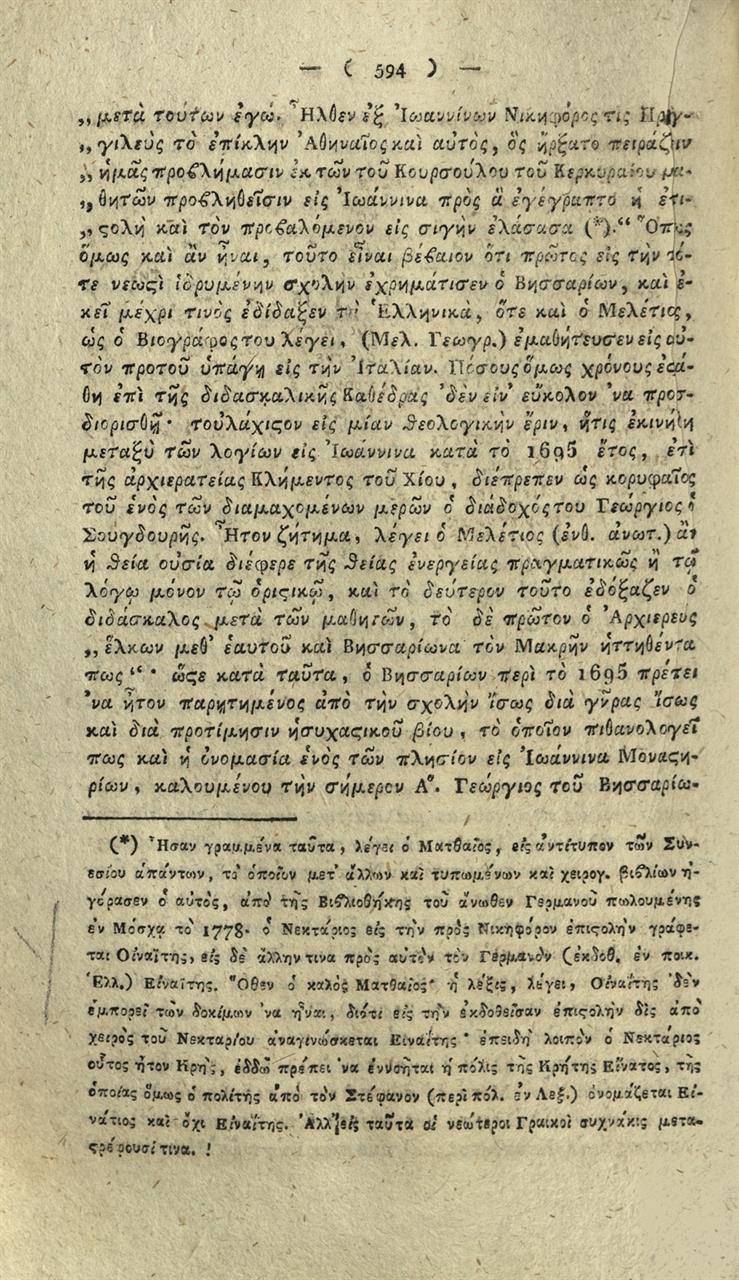 — ( 594 ) —
„μετὰ τούτων ἐγώ. Ἦλθεν ἐξ Ἰωαννίνων Νικηφόρος τις
„γιλεὺς τὸ ἐπίκλην Ἀθηναῖος καὶ αὐτὸς, ὃς ἤρξατο πειράζειν
„ἡμᾶς προβλήμασιν ἐκ τῶν τοῦ Κουρσούλου τοῦ Κερκυραίου μα-
„θητῶν προβληθεῖσιν εἰς Ἰωάννινα πρὸς ἃ ἐγέγραπτο ἡ ἐπι-
„ϛολὴ καὶ τὸν προβαλόμενον εἰς σιγὴν ἐλάσασα (*).“ Ὅπως
ὅμως καὶ ἂν ᾖναι, τοῦτο εἶναι βέβαιον ὅτι πρῶτος εἰς τὴν τό-
τε νεωϛὶ ἱδρυμένην σχολὴν ἐχρημάτισεν ὁ Βησσαρίων, καὶ ἐ-
κεῖ μέχρι τινὸς ἐδίδαξεν τὰ Ἑλληνικὰ, ὅτε καὶ ὁ Μελέτιος,
ὡς ὁ Βιογράφος του λέγει, (Μελ. Γεωγρ.) ἐμαθήτευσεν εἰς αὐ-
τὸν προτοῦ ὑπάγῃ εἰς τὴν Ἰταλίαν. Πόσους ὅμως χρόνους ἐϛά-
θη ἐπὶ τῆς διδασκαλικῆς Καθέδρας δὲν εἶν’ εὔκολον ’να προσ-
διορισθῇ· τοὐλάχιϛον εἰς μίαν θεολογικὴν ἔριν, ἥτις ἐκινήθη
μεταξὺ τῶν λογίων εἰς Ἰωαννινα κατὰ τὸ 1695 ἔτος, ἐπὶ
τῆς ἀρχιερατείας Κλήμεντος τοῦ Χίου, διέπρεπεν ὡς κορυφαῖος
τοῦ ἑνὸς τῶν διαμαχομένων μερῶν ὁ διάδοχός του Γεώργιος ὁ
Σουγδουρῆς. Ἦτον ζήτημα, λέγει ὁ Μελέτιος (ἐνθ. ἀνωτ.) ἂν
ἡ θεία οὐσία διέφερε τῆς θείας ἐνεργείας πραγματικῶς ἢ τῷ
λόγῳ μόνον τῷ ὁριϛικῷ, καὶ τὸ δεύτερον τοῦτο ἐδόξαζεν ὁ
διδάσκαλος μετὰ τῶν μαθητῶν, τὸ δὲ πρῶτον ὁ Ἀρχιερεὺς
„ἕλκων μεθ’ ἑαυτοῦ καὶ Βησσαρίωνα τὸν Μακρῆν ἡττηθέντα
πως“· ὥϛε κατὰ ταῦτα, ὁ Βησσαρίων περὶ τὸ 1695 πρέπει
’να ἦτον παρῃτημένος ἀπὸ τὴν σχολὴν ἴσως διὰ γῆρας ἴσως
καὶ διὰ προτίμησιν ἡσυχαϛικοῦ βίου, τὸ ὁποῖον πιθανολογεῖ
πως καὶ ἡ ὀνομασία ἑνὸς τῶν πλησίον εἰς Ἰωάννινα Μοναϛη-
ρίων, καλουμένου τὴν σήμερον Α⁰. Γεώργιος τοῦ Βησσαρίω-
(*) Ἦσαν γραμμένα ταῦτα, λέγει ὁ Ματθαῖος, εἰς ἀντίτυπον τῶν Συν-
εσίου ἁπάντων, τὸ ὁποῖον μετ’ ἄλλων καὶ τυπωμένων καὶ χειρογ. βιβλίων ἠ-
γόρασεν ὁ αὐτὸς, ἀπὸ τῆς Βιβλιοθήκης τοῦ ἄνωθεν Γερμανοῦ πωλουμένης
ἐν Μόσχᾳ τὸ 1778. ὁ Νεκτάριος εἰς τὴν πρὸς Νικηφόρον ἐπιϛολὴν γράφε-
ται Οἰναΐτης, εἰς δὲ ἄλλην τινα πρὸς αὐτὸν τὸν Γερμανὸν (ἐκδοθ. ἐν ποικ.
Ἑλλ.) Εἰναΐτης. “Ὅθεν ὁ καλὸς Ματθαῖος· ἡ λέξις, λέγει, Οἰναΐτης δὲν
ἐμπορεῖ τῶν δοκίμων ’να ᾖναι, διότι εἰς τὴν ἐκδοθεῖσαν ἐπιϛολὴν δὶς ἀπὸ
χειρὸς τοῦ Νεκταρίου ἀναγινώσκεται Εἰναΐτης· ἐπειδὴ λοιπὸν ὁ Νεκτάριος
οὗτος ἦτον Κρὴς, ἐδδῶ πρέπει ’να ἐννοῆται ἡ πόλις τῆς Κρήτης Εἴνατος, τῆς
ὁποίας ὅμως ὁ πολίτης ἀπὸ τὸν Στέφανον (περὶ πόλ. ἐν Λεξ.) ὀνομάζεται Εἰ-
νάτιος καὶ ὄχι Εἰναΐτης. Ἀλλ’ εἰς ταῦτα οἱ νεώτεροι Γραικοὶ συχνάκις μετα-
ϛρέφουσί τινα. !